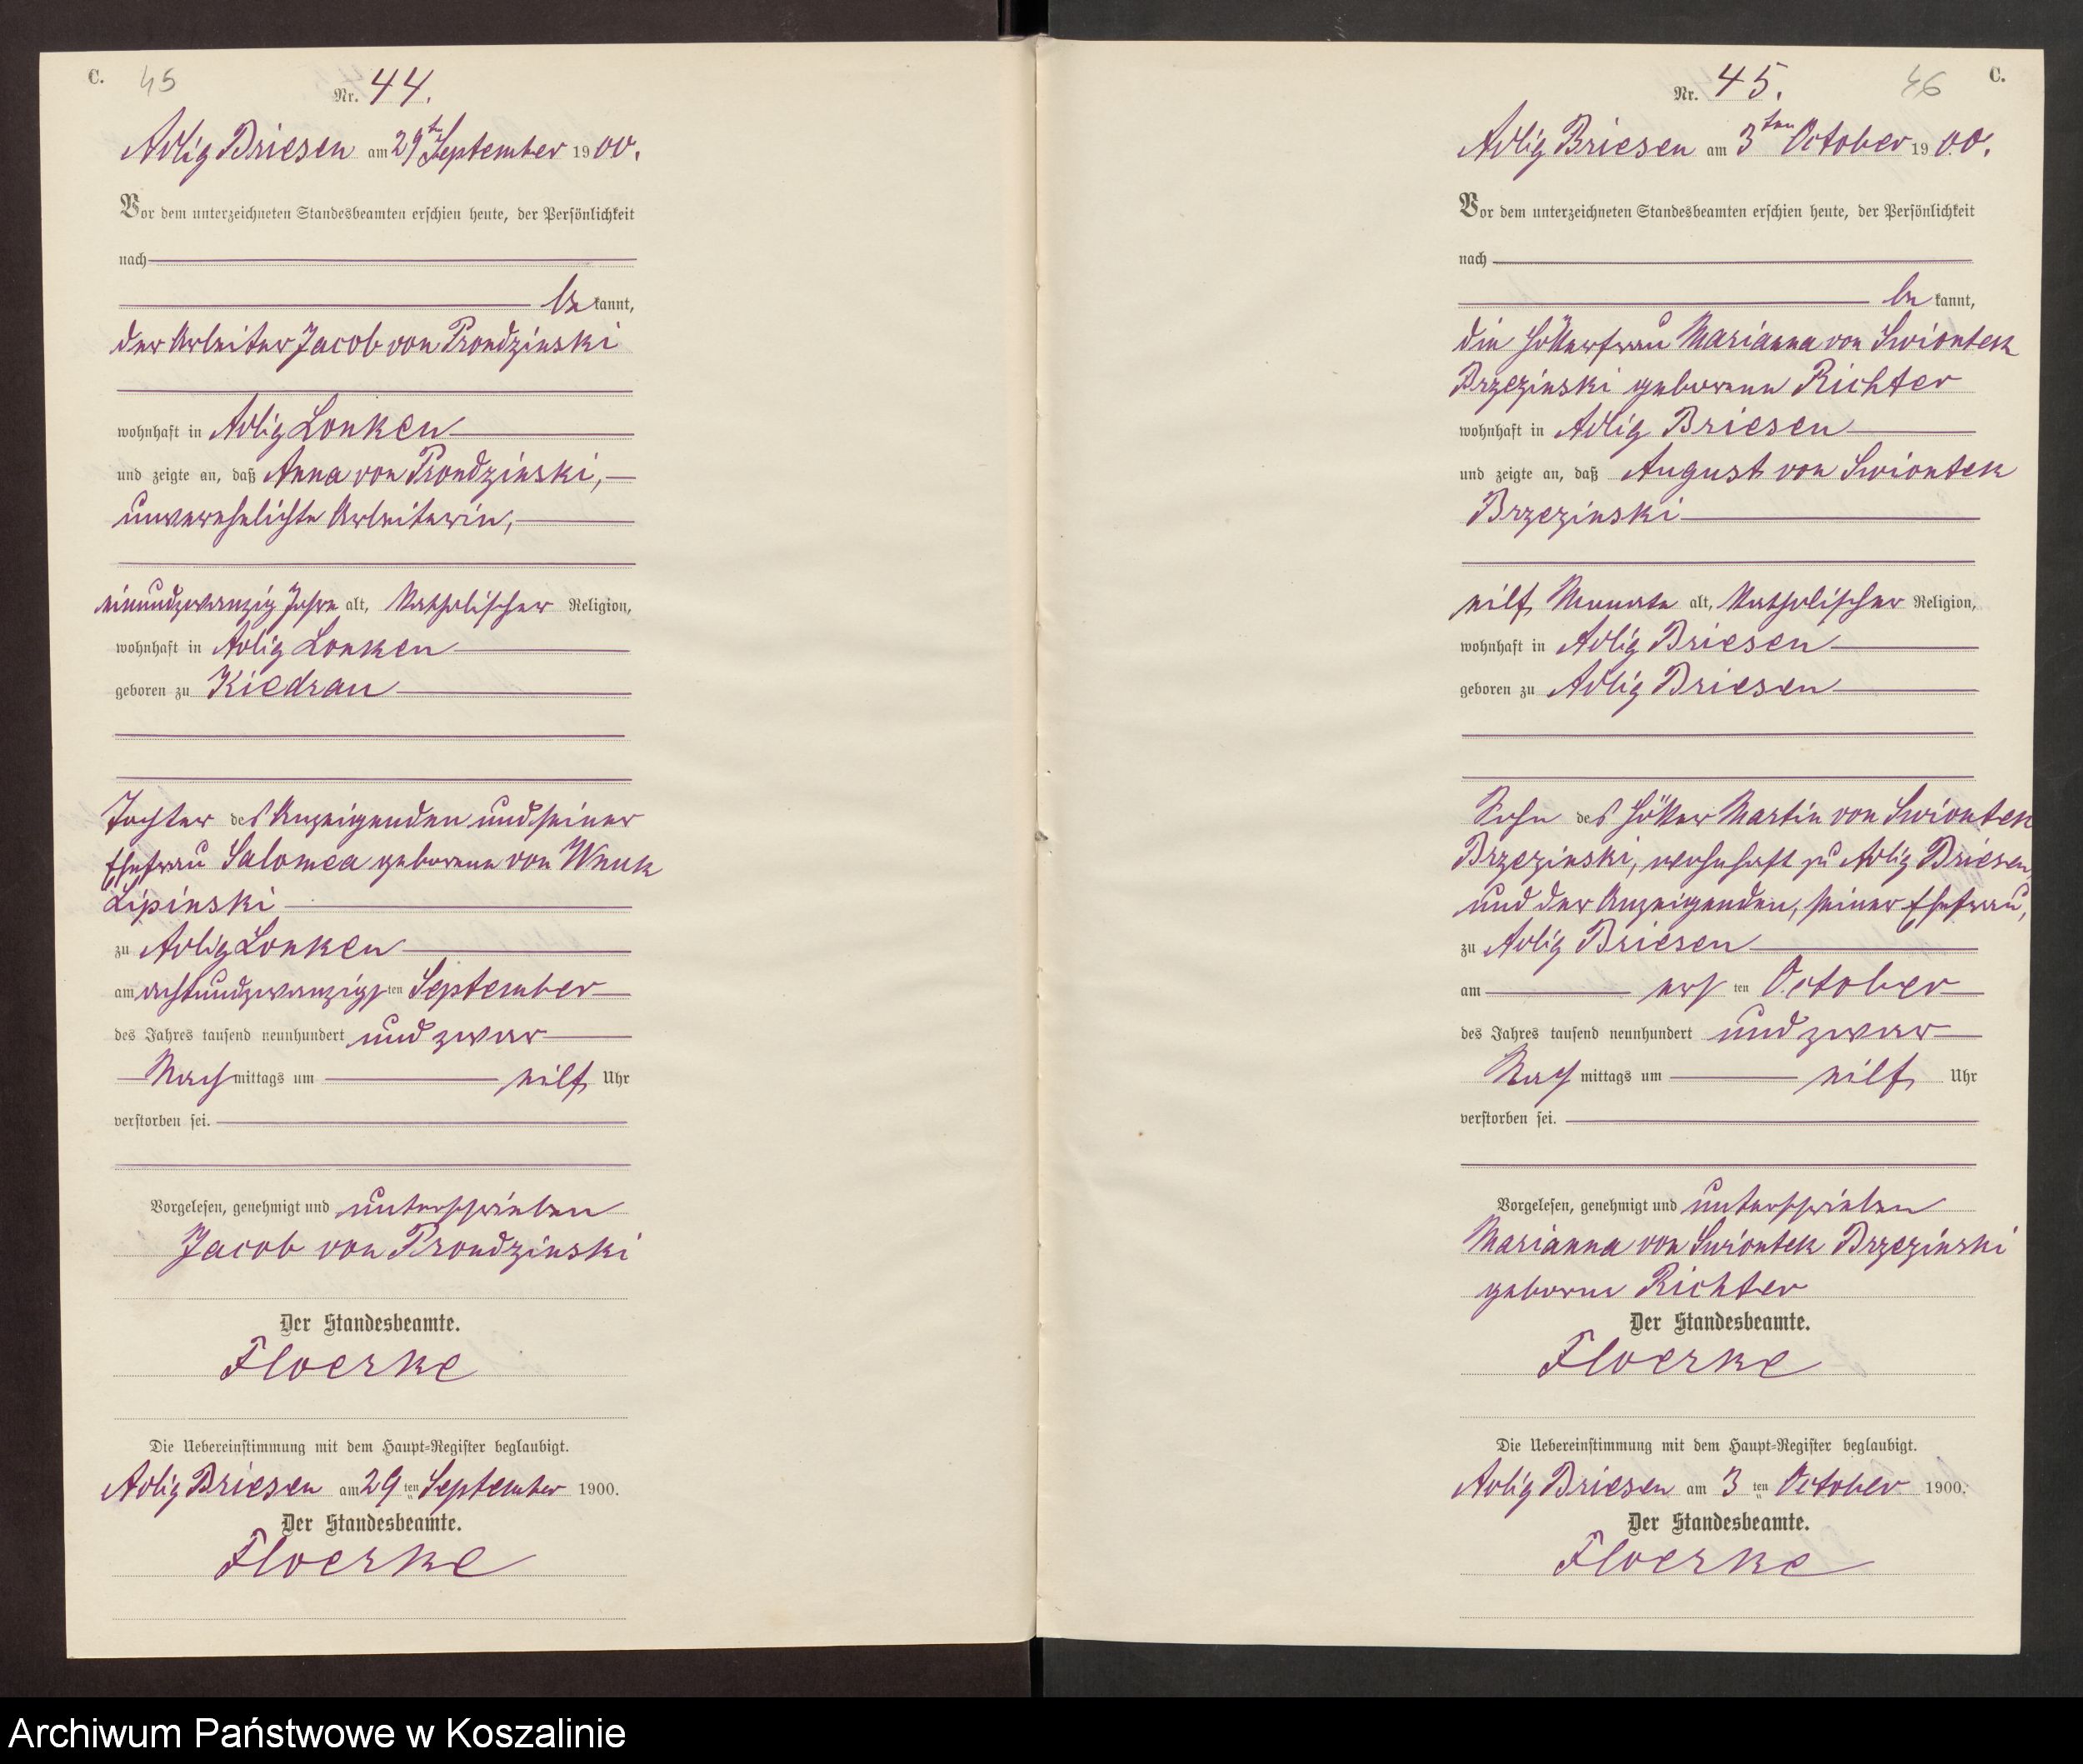 C. 45
Nr. 44.
Adlig Briesen am 29ten September 1900.
Vor dem unterzeichneten Standesbeamten erschien heute, der Persönlichkeit
nach
be kannt,
der Arbeiter Jacob von Prondzinski
wohnhaft in Adlig Lonken
und zeigte an, daß Anna von Prondzinski,
unverehelichte Arbeiterin,
einundzwanzig Jahre alt, katholischer Religion,
wohnhaft in Adlig Lonken
geboren zu Kiedrau
Tochter des Anzeigenden und seiner
Ehefrau Salomea geborene von Wnuk
Lipinski
zu Adlig Lonken
am achtundzwanzigsten September
des Jahres tausend neunhundert und zwar
Nach mittags um eilf Uhr
verstorben sei.
Vorgelesen, genehmigt und unterschrieben
Jacob von Prondzinski
Der Standesbeamte.
Floerke
Die Uebereinstimmung mit dem Haupt-Register beglaubigt.
Adlig Briesen am 29 ten September 1900.
Der Standesbeamte.
Floerke
46 C.
Nr. 45.
Adlig Briesen am 3ten October 1900.
Vor dem unterzeichneten Standesbeamten erschien heute, der Persönlichkeit
nach
be kannt,
die Hökerfrau Marianna von Swiontek
Brzezinski geborene Richter
wohnhaft in Adlig Briesen
und zeigte an, daß August von Swiontek
Brzezinski
eilf Monate alt, katholischer Religion,
wohnhaft in Adlig Briesen
geboren zu Adlig Briesen
Sohn des Höker Martin von Swiontek
Brzezinski, wohnhaft zu Adlig Briesen,
und der Anzeigenden, seiner Ehefrau,
zu Adlig Briesen
am ers ten October
des Jahres tausend neunhundert und zwar
Nach mittags um eilf Uhr
verstorben sei.
Vorgelesen, genehmigt und unterschrieben
Marianna von Swiontek Brzezinski
geborne Richter
Der Standesbeamte.
Floerke
Die Uebereinstimmung mit dem Haupt-Register beglaubigt.
Adlig Briesen am 3 ten October 1900.
Der Standesbeamte.
Floerke
Archiwum Państwowe w Koszalinie